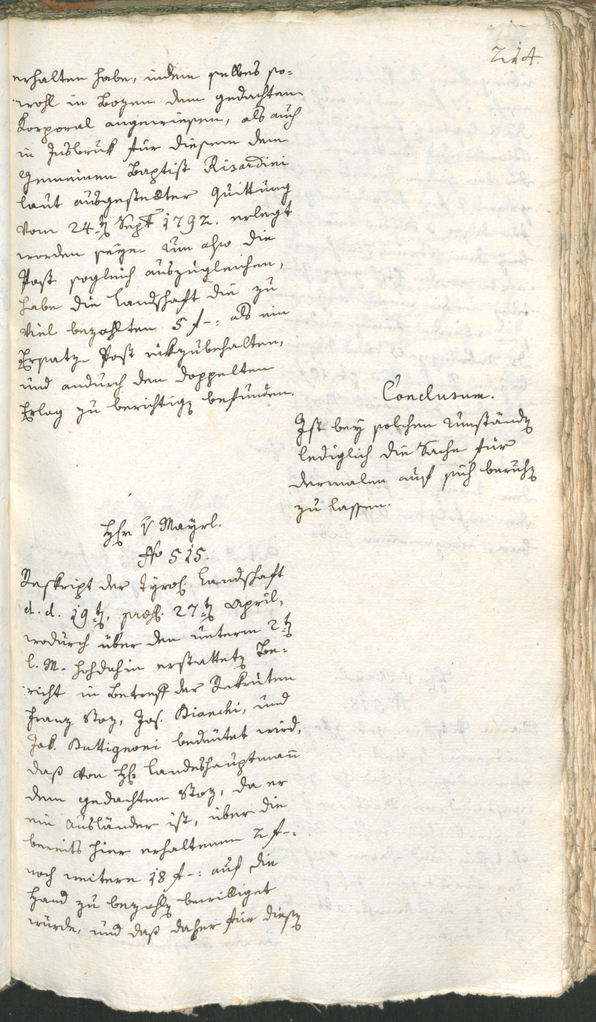 214.
erhalten habe, indem selbes so-
wohl in Bozen dem gedachten
Korporal angewiesen, als auch
in Insbruk für diesem dem
Gemeinen Baptist Rizardini
laut ausgestellter Quittung
vom 24.ten Sept. 1792. erlegt
worden seye um also die
Post sogleich auszugleichen,
habe die Landschaft die zu
viel bezahlten 5 f -: als ein
Ersatz Post rükzubehalten,
und andurch den doppelten
Erlag zu berichtigen befunden.
Conclusum.
Ist bey solchen Umständen
lediglich die Sache für
dermalen auf sich beruhen
zu lassen.
Hr. v Mayrl.
No 515.
Reskript der Tyrol. Landschaft
d. d. 19ten, præs. 27ten April,
wodurch über den unterm 2ten
l. M. hochdahin erstatteten Be-
richt in Betreff der Rekruten
Franz Stoz, Jos. Bianchi, und
Jak. Battignoni bedeutet wird,
daß von Hr. Landeshauptmann
dem gedachten Stoz, da er
ein Ausländer ist, über die
bereits hier erhaltenen 2 f -:
noch weitere 18 f -: auf die
Hand zu bezahlen bewilliget
würde, und daß daher für diesen